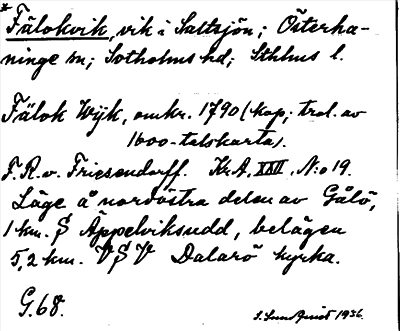 * Fälokvik, vik i Saltsjön; Österha-
ninge sn; Sotholms hd; Sthlms l.
Fälok Wijk, omkr. 1790 (kop; trol. av
1600-talskarta).
F. R. v. Friesendorff. Kr.A. XXII, N:o 19.
Läge å nordöstra delen av Gålö,
1 km. S Äppelviksudd, belägen
5,2 km. VSV Dalarö kyrka.
G. 68.
I. Lundquist 1936.